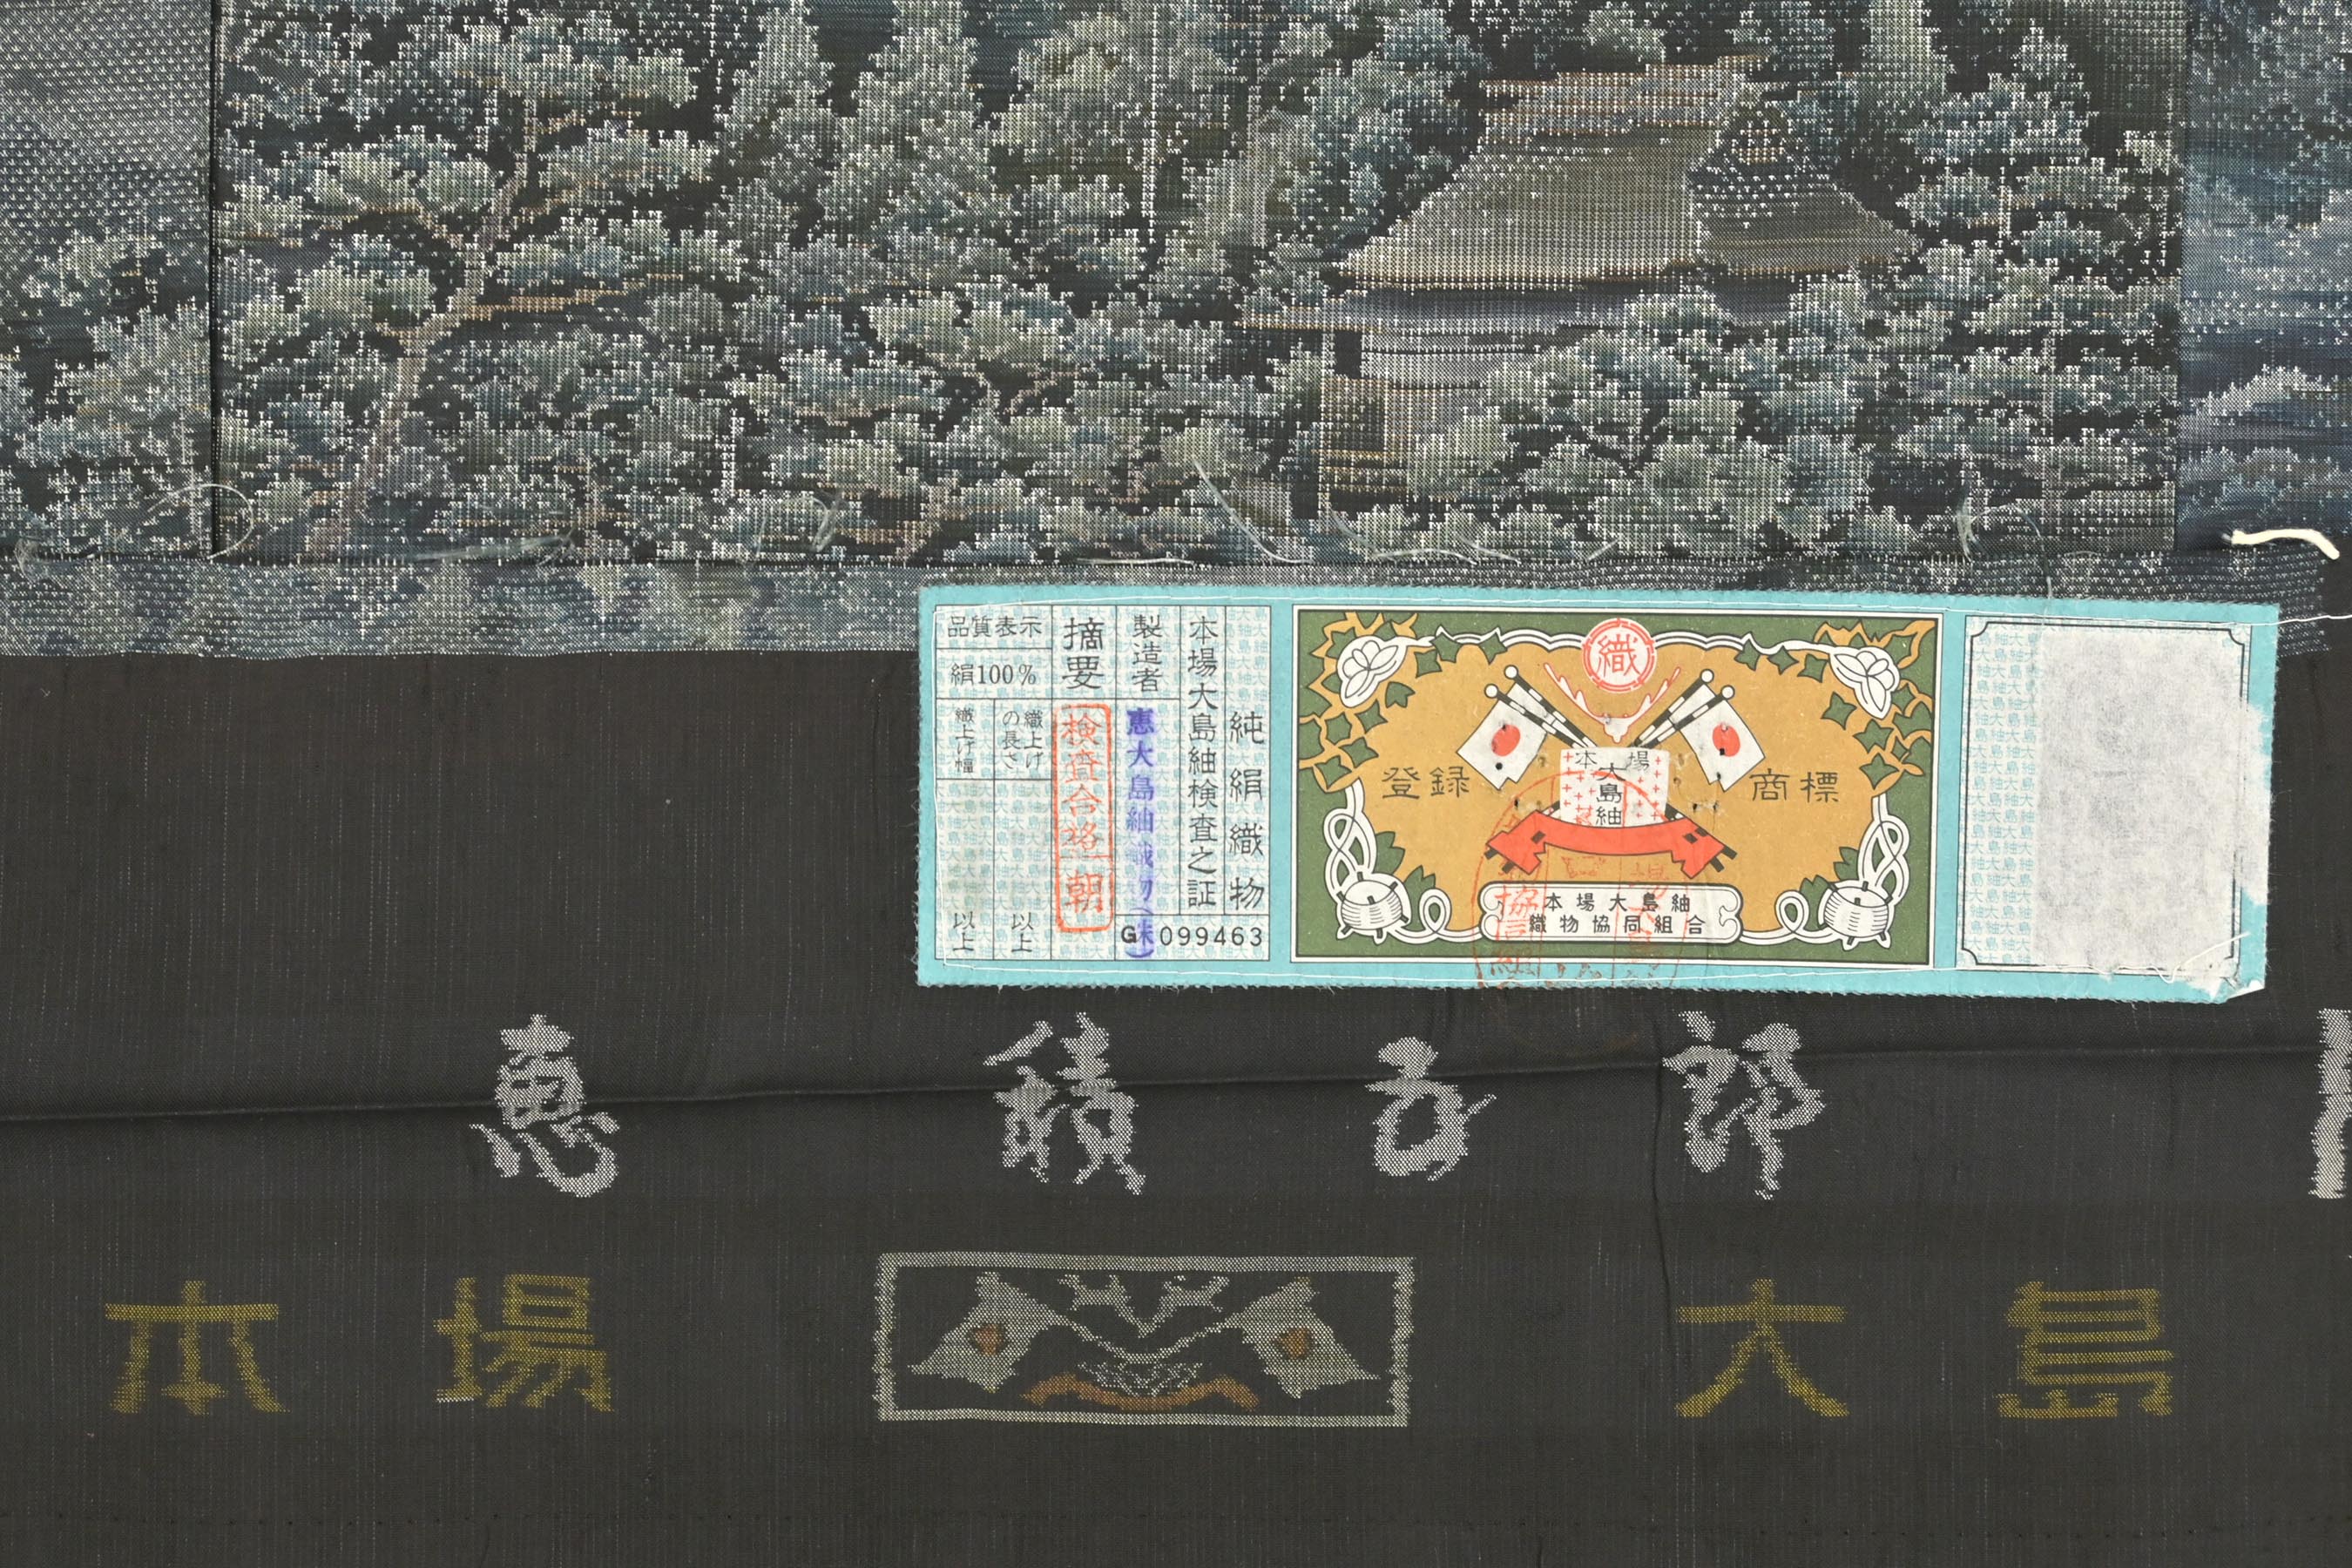 純絹織物
本場大島紬検査之証
製造者
恵大島紬織物(株)
G 099463
摘要
検査合格
朝
品質表示
絹100%
織上げの長さ
以上
織上げ幅
以上
織
登録
商標
本場
大島紬
本場大島紬
織物協同組合
恵 積五郎
本場 大島